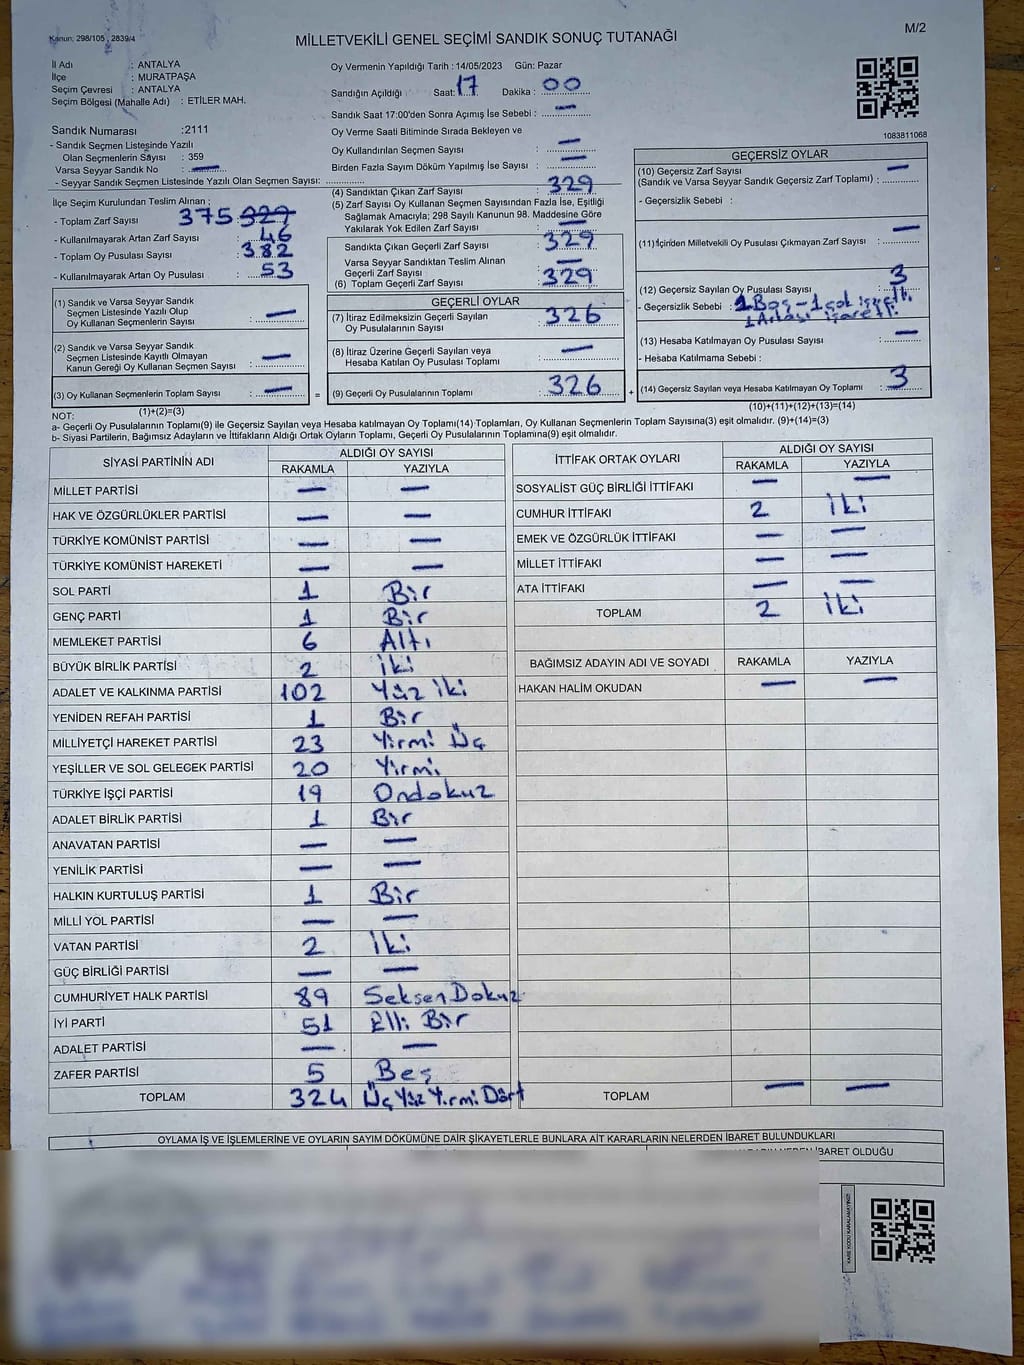 Kanun: 298/105 , 2839/4
MİLLETVEKİLİ GENEL SEÇİMİ SANDIK SONUÇ TUTANAĞI
M/2
İl Adı : ANTALYA
İlçe : MURATPAŞA
Seçim Çevresi : ANTALYA
Seçim Bölgesi (Mahalle Adı) : ETİLER MAH.
Oy Vermenin Yapıldığı Tarih : 14/05/2023 Gün: Pazar
Sandığın Açıldığı Saat: 17 Dakika : 00
Sandık Saat 17:00'den Sonra Açımış İse Sebebi : —
Oy Verme Saati Bitiminde Sırada Bekleyen ve
Oy Kullandırılan Seçmen Sayısı : —
Birden Fazla Sayım Döküm Yapılmış İse Sayısı : —
1083811068
Sandık Numarası :2111
- Sandık Seçmen Listesinde Yazılı
Olan Seçmenlerin Sayısı : 359
Varsa Seyyar Sandık No : —
- Seyyar Sandık Seçmen Listesinde Yazılı Olan Seçmen Sayısı:
İlçe Seçim Kurulundan Teslim Alınan ;
- Toplam Zarf Sayısı : 375 329
- Kullanılmayarak Artan Zarf Sayısı : 46
- Toplam Oy Pusulası Sayısı : 382
- Kullanılmayarak Artan Oy Pusulası : 53
(1) Sandık ve Varsa Seyyar Sandık
Seçmen Listesinde Yazılı Olup
Oy Kullanan Seçmenlerin Sayısı : —
(2) Sandık ve Varsa Seyyar Sandık
Seçmen Listesinde Kayıtlı Olmayan
Kanun Gereği Oy Kullanan Seçmen Sayısı : —
(3) Oy Kullanan Seçmenlerin Toplam Sayısı : —
(1)+(2)=(3)
(4) Sandıktan Çıkan Zarf Sayısı : 329
(5) Zarf Sayısı Oy Kullanan Seçmen Sayısından Fazla İse, Eşitliği
Sağlamak Amacıyla; 298 Sayılı Kanunun 98. Maddesine Göre
Yakılarak Yok Edilen Zarf Sayısı : —
Sandıkta Çıkan Geçerli Zarf Sayısı : 329
Varsa Seyyar Sandıktan Teslim Alınan
Geçerli Zarf Sayısı : —
(6) Toplam Geçerli Zarf Sayısı : 329
GEÇERLİ OYLAR
(7) İtiraz Edilmeksizin Geçerli Sayılan
Oy Pusulalarının Sayısı : 326
(8) İtiraz Üzerine Geçerli Sayılan veya
Hesaba Katılan Oy Pusulası Toplamı : —
= (9) Geçerli Oy Pusulalarının Toplamı : 326 +
GEÇERSİZ OYLAR
(10) Geçersiz Zarf Sayısı
(Sandık ve Varsa Seyyar Sandık Geçersiz Zarf Toplamı) : —
- Geçersizlik Sebebi :
(11) İçinden Milletvekili Oy Pusulası Çıkmayan Zarf Sayısı : —
(12) Geçersiz Sayılan Oy Pusulası Sayısı : 3
- Geçersizlik Sebebi : 1 Boş - 1 çok işaretli
1 Arkası işaretli
(13) Hesaba Katılmayan Oy Pusulası Sayısı : —
- Hesaba Katılmama Sebebi :
(14) Geçersiz Sayılan veya Hesaba Katılmayan Oy Toplamı : 3
(10)+(11)+(12)+(13)=(14)
NOT:
a- Geçerli Oy Pusulalarının Toplamı(9) ile Geçersiz Sayılan veya Hesaba katılmayan Oy Toplamı(14) Toplamları, Oy Kullanan Seçmenlerin Toplam Sayısına(3) eşit olmalıdır. (9)+(14)=(3)
b- Siyasi Partilerin, Bağımsız Adayların ve İttifakların Aldığı Ortak Oyların Toplamı, Geçerli Oy Pusulalarının Toplamına(9) eşit olmalıdır.
SİYASİ PARTİNİN ADI ALDIĞI OY SAYISI
RAKAMLA YAZIYLA
MİLLET PARTİSİ — —
HAK VE ÖZGÜRLÜKLER PARTİSİ — —
TÜRKİYE KOMÜNİST PARTİSİ — —
TÜRKİYE KOMÜNİST HAREKETİ — —
SOL PARTİ 1 Bir
GENÇ PARTİ 1 Bir
MEMLEKET PARTİSİ 6 Altı
BÜYÜK BİRLİK PARTİSİ 2 İki
ADALET VE KALKINMA PARTİSİ 102 Yüz iki
YENİDEN REFAH PARTİSİ 1 Bir
MİLLİYETÇİ HAREKET PARTİSİ 23 Yirmi Üç
YEŞİLLER VE SOL GELECEK PARTİSİ 20 Yirmi
TÜRKİYE İŞÇİ PARTİSİ 19 Ondokuz
ADALET BİRLİK PARTİSİ 1 Bir
ANAVATAN PARTİSİ — —
YENİLİK PARTİSİ — —
HALKIN KURTULUŞ PARTİSİ 1 Bir
MİLLİ YOL PARTİSİ — —
VATAN PARTİSİ 2 İki
GÜÇ BİRLİĞİ PARTİSİ — —
CUMHURİYET HALK PARTİSİ 89 Seksen Dokuz
İYİ PARTİ 51 Elli Bir
ADALET PARTİSİ — —
ZAFER PARTİSİ 5 Beş
TOPLAM 324 Üç Yüz Yirmi Dört
İTTİFAK ORTAK OYLARI ALDIĞI OY SAYISI
RAKAMLA YAZIYLA
SOSYALİST GÜÇ BİRLİĞİ İTTİFAKI — —
CUMHUR İTTİFAKI 2 iki
EMEK VE ÖZGÜRLÜK İTTİFAKI — —
MİLLET İTTİFAKI — —
ATA İTTİFAKI — —
TOPLAM 2 iki
BAĞIMSIZ ADAYIN ADI VE SOYADI RAKAMLA YAZIYLA
HAKAN HALİM OKUDAN — —
TOPLAM — —
OYLAMA İŞ VE İŞLEMLERİNE VE OYLARIN SAYIM DÖKÜMÜNE DAİR ŞİKAYETLERLE BUNLARA AİT KARARLARIN NELERDEN İBARET BULUNDUKLARI
İBARET OLDUĞU
KARE KODU KARALAMAYINIZ!